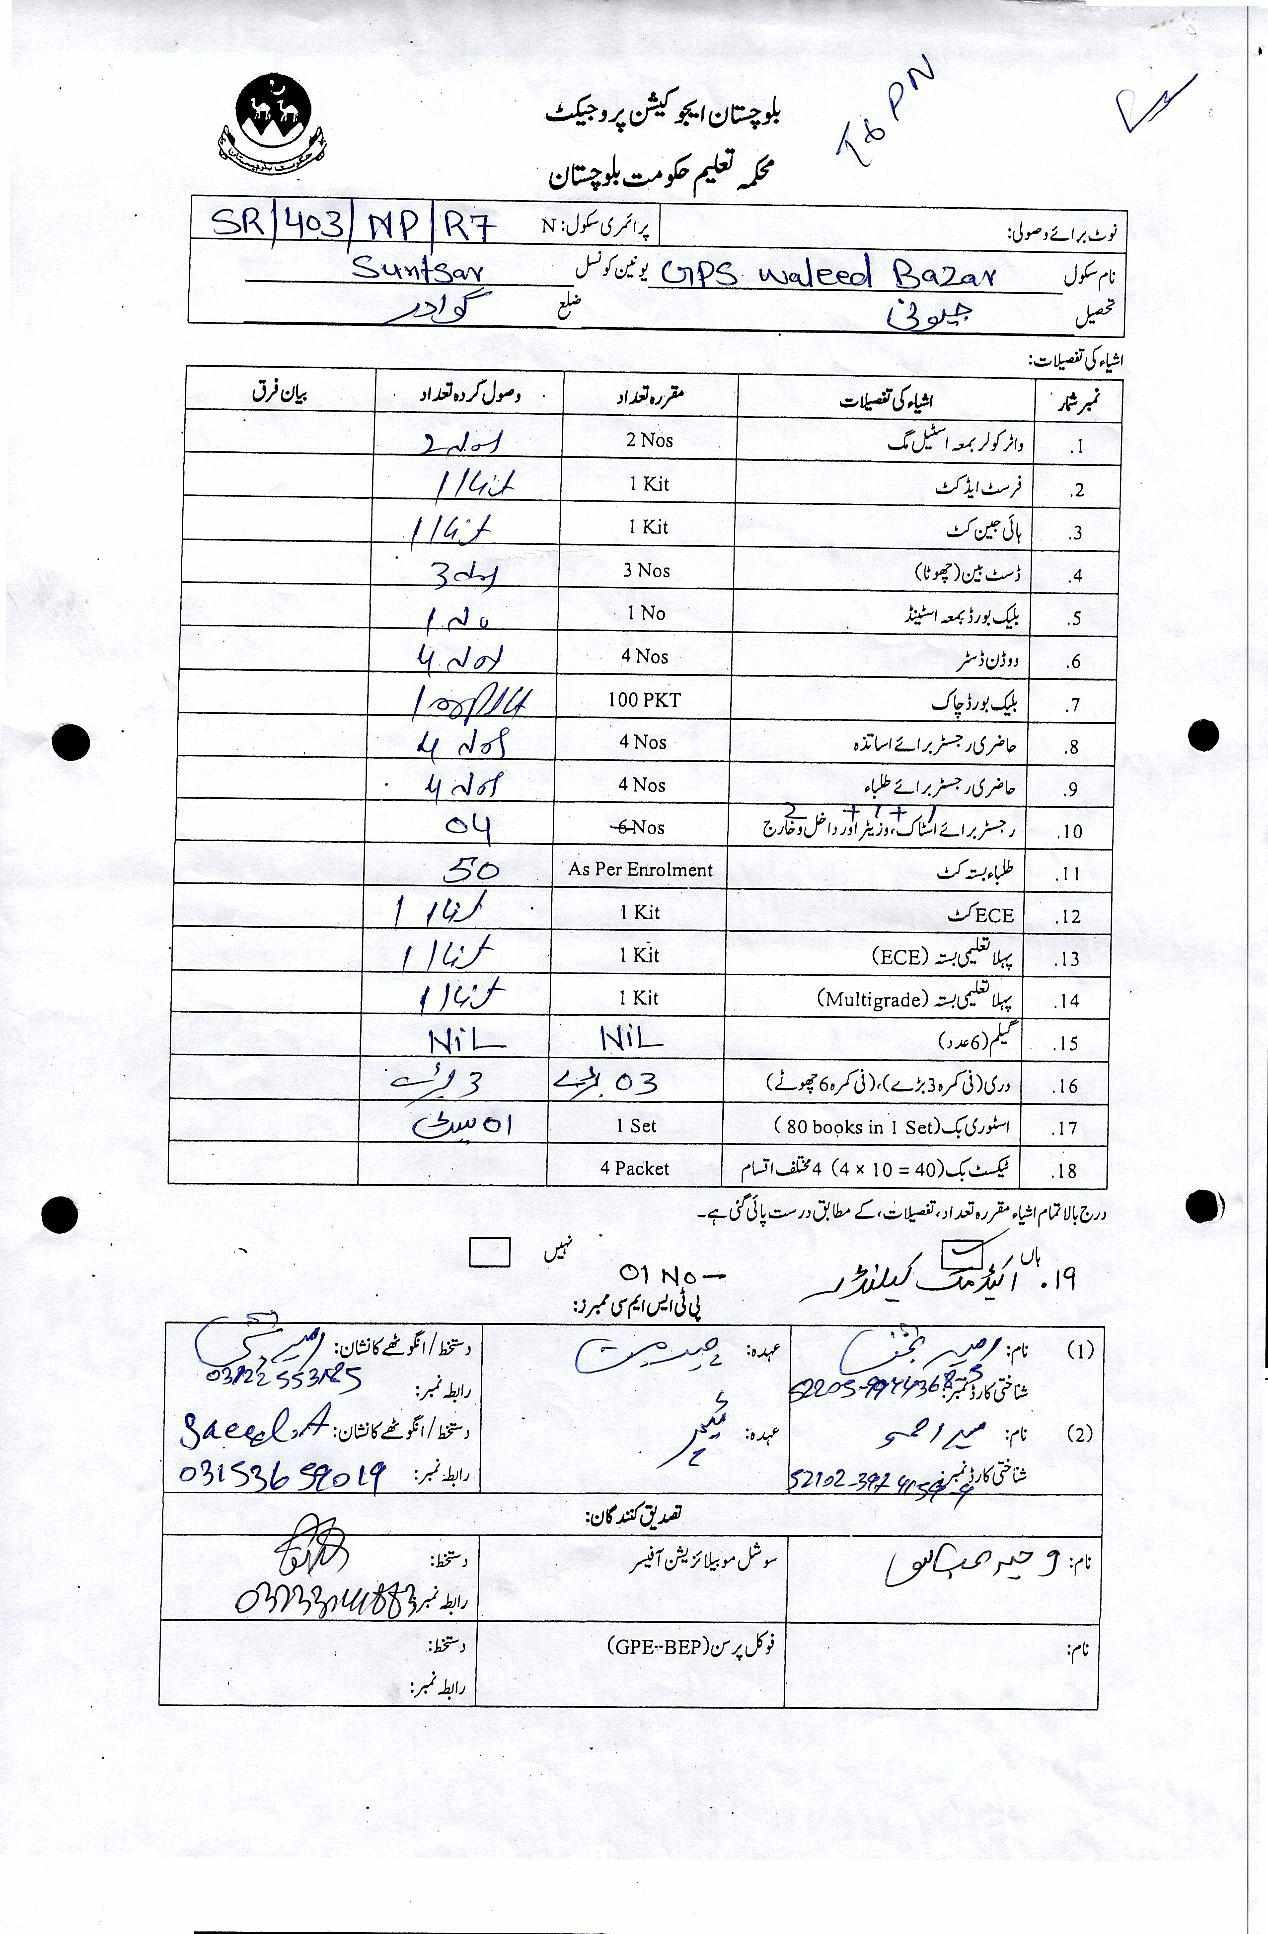 بلوچستان ایجوکیشن پروجیکٹ
محکمہ تعلیم حکومت بلوچستان
نوٹ برائے وصولی: پرائمری سکول: N SR/403/NP/R7
نام سکول GPS waleed Bazar یونین کونسل Suntsar
تحصیل جیونی ضلع گوادر
اشیاء کی تفصیلات:
نمبر شمار اشیاء کی تفصیلات مقررہ تعداد وصول کردہ تعداد بیان فرق
1. واٹر کولر بمعہ اسٹیل مگ 2 Nos 2 Nos
2. فرسٹ ایڈ کٹ 1 Kit 1 Kit
3. ہائی جین کٹ 1 Kit 1 Kit
4. ڈسٹ بین (چھوٹا) 3 Nos 3 Nos
5. بلیک بورڈ بمعہ اسٹینڈ 1 No 1 No
6. ووڈن ڈسٹر 4 Nos 4 Nos
7. بلیک بورڈ چاک 100 PKT 100 Pkt
8. حاضری رجسٹر برائے اساتذہ 4 Nos 4 Nos
9. حاضری رجسٹر برائے طلباء 4 Nos 4 Nos
2 + 1 + 1
10. رجسٹر برائے اسٹاک، وزیٹر اور داخل و خارج 6 Nos 04
11. طلباء بستہ کٹ As Per Enrolment 50
12. ECE کٹ 1 Kit 1 Kit
13. پہلا تعلیمی بستہ (ECE) 1 Kit 1 Kit
14. پہلا تعلیمی بستہ (Multigrade) 1 Kit 1 Kit
15. گیلم (6 عدد) NiL NiL
16. دری (فی کمرہ 3 بڑے)، (فی کمرہ 6 چھوٹے) 03 بڑے 3 بڑے
17. اسٹوری بک (80 books in 1 Set) 1 Set 01 سیٹ
18. ٹیکسٹ بک (4 × 10 = 40) 4 مختلف اقسام 4 Packet
درج بالا تمام اشیاء مقررہ تعداد، تفصیلات، کے مطابق درست پائی گئی ہے۔
ہاں نہیں
۱۹. اکیڈمک کیلنڈر 01 No
پی ٹی ایس ایم سی ممبرز:
(1) نام: عہدہ: چیرمین دستخط / انگوٹھے کا نشان:
شناختی کارڈ نمبر: رابطہ نمبر:
(2) نام: میر احمد عہدہ: ممبر دستخط / انگوٹھے کا نشان: Saeed.A
شناختی کارڈ نمبر: رابطہ نمبر: 03153659019
تصدیق کنندگان:
نام: سوشل موبیلائزیشن آفیسر دستخط:
رابطہ نمبر:
نام: فوکل پرسن (GPE--BEP) دستخط:
رابطہ نمبر: